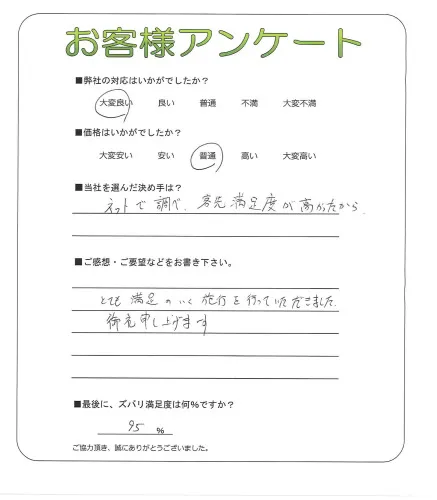 お客様アンケート
■弊社の対応はいかがでしたか？
大変良い 良い 普通 不満 大変不満
■価格はいかがでしたか？
大変安い 安い 普通 高い 大変高い
■当社を選んだ決め手は？
ネットで調べ、客先満足度が高かったから
■ご感想・ご要望などをお書き下さい。
とても満足のいく施行を行っていただきました
御礼申し上げます
■最後に、ズバリ満足度は何％ですか？
95 ％
ご協力頂き、誠にありがとうございました。